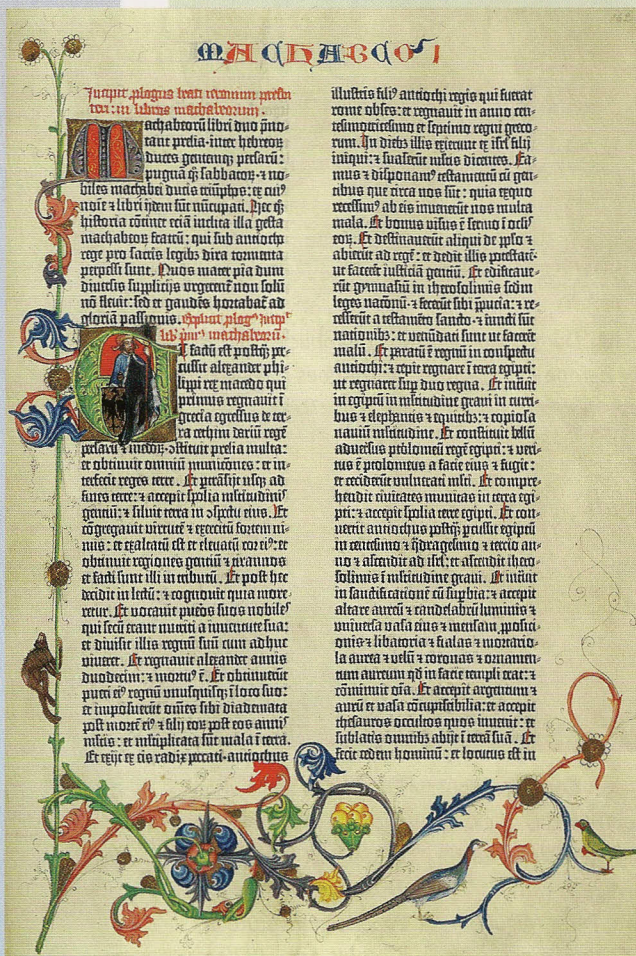 MACHABEOR I
Incipit plogus beati ieronimi presbi
teri in libros machabeorum.
Machabeorū libri duo p̄no-
tant prelia inter hebreor̄
duces gentemq; persarū:
pugnā q̄; sabbator̄: ⁊ no-
biles machabei ducis triūphos: ex cui⁹
noīe ⁊ libri ijdem sūt nūcupati. Hec q̄;
historia cōtinet eciā inclita illa gesta
machabeor̄ fratrū: qui sub antiocho
rege pro sacris legib⁹ dira tormenta
perpessi sunt. Quos mater pia dum
diversis suplicijs urgerent̄ non solū
nō flevit: sed et gaudēs hortabat̄ ad
gloriā passionis. Explicit plog⁹ Incip̄t
lib̄ prim⁹ machabeorū.
Et factū est postq̄; per-
cussit alexander phi-
lippi rex macedo qui
primus regnavit ī
grecia egressus de ter-
ra cethim dariū regē
persarū ⁊ medor̄: ꝯstituit prelia multa:
et obtinuit omniū municōnes: et in-
terfecit reges terre. Et p̄transijt usq; ad
fines terre: ⁊ accepit spolia multitudinis
gentiū: ⁊ siluit terra in ꝯspectu eius. Et
cōgregavit virtutē ⁊ exercitū fortem ni-
mis: et exaltatū est et elevatū cor ei⁹: et
obtinuit regiones gentiū ⁊ tirannos
et facti sunt illi in tributū. Et post hec
decidit in lectū: ⁊ cognovit quia more-
retur. Et vocavit pueros suos nobiles
qui secū erant nutriti a iuventute sua:
et divisit illis regnū suū cum adhuc
viveret. Et regnavit alexander annis
duodecim: ⁊ mortu⁹ ē. Et obtinuerūt
pueri ei⁹ regnū unusquisq; ī loco suo:
et imposuerūt om̄es sibi diademata
post mortē ei⁹ ⁊ filij eor̄ post eos annis
multis: et multiplicata sūt mala ī terra.
Et exijt ex eis radix peccati antiochus
illustris fili⁹ antiochi regis qui fuerat
rome obses: et regnavit in anno cen-
tesimotricesimo et septimo regni greco-
rum. In dieb⁹ illis exierunt ex isrl̄ filij
iniqui: ⁊ suaserūt multis dicentes. Ea-
mus ⁊ disponam⁹ testamentū cū gen-
tibus que circa nos sūt: quia ex quo
recessim⁹ ab eis invenerūt nos multa
mala. Et bonus visus ē sermo ī oclīs
eor̄. Et destinaverūt aliqui de pp̄lo ⁊
abierūt ad regē: et dedit illis potestatē
ut facerēt iusticiā gentiū. Et edificave-
rūt gymnasiū in iherosolimis scd̄m
leges nacōnū: ⁊ fecerūt sibi p̄pucia: ⁊ re-
cesserūt a testamēto sancto: ⁊ iuncti sūt
nationib⁹: et venūdati sunt ut facerēt
malū. Et paratū ē regnū in conspectu
antiochi: ⁊ cepit regnare ī terra egipti:
ut regnaret sup̄ duo regna. Et intravit
in egiptū in multitudine gravi in curri-
bus ⁊ elephantis ⁊ equitib⁹: ⁊ copiosa
naviū multitudine. Et constituit bellū
adversus ptholomeū regē egipti: ⁊ veri-
tus ē ptolomeus a facie eius ⁊ fugit:
et ceciderūt vulnerati mlt̄i. Et compre-
hendit civitates munitas in terra egi-
pti: ⁊ accepit spolia terre egipti. Et con-
vertit antiochus postq̄; percussit egiptū
in centesimo ⁊ q̄dragesimo ⁊ tercio an-
no ⁊ ascendit ad isrl̄: et ascendit ihero-
solimis ī multitudine gravi. Et intravit
in sanctificationē cū supbia: ⁊ accepit
altare aureū ⁊ candelabrū luminis ⁊
universa vasa eius ⁊ mensam p̄posici-
onis ⁊ libatoria ⁊ fialas ⁊ mortario-
la aurea ⁊ velū ⁊ coronas ⁊ ornamen-
tum aureum qd̄ in facie templi erat: ⁊
cōminuit om̄a. Et accepit argentum ⁊
aurū et vasa cōcupiscibilia: et accepit
thesauros occultos quos invenit: et
sublatis omnib⁹ abijt ī terrā suā. Et
fecit cedem hominū: et locutus est in